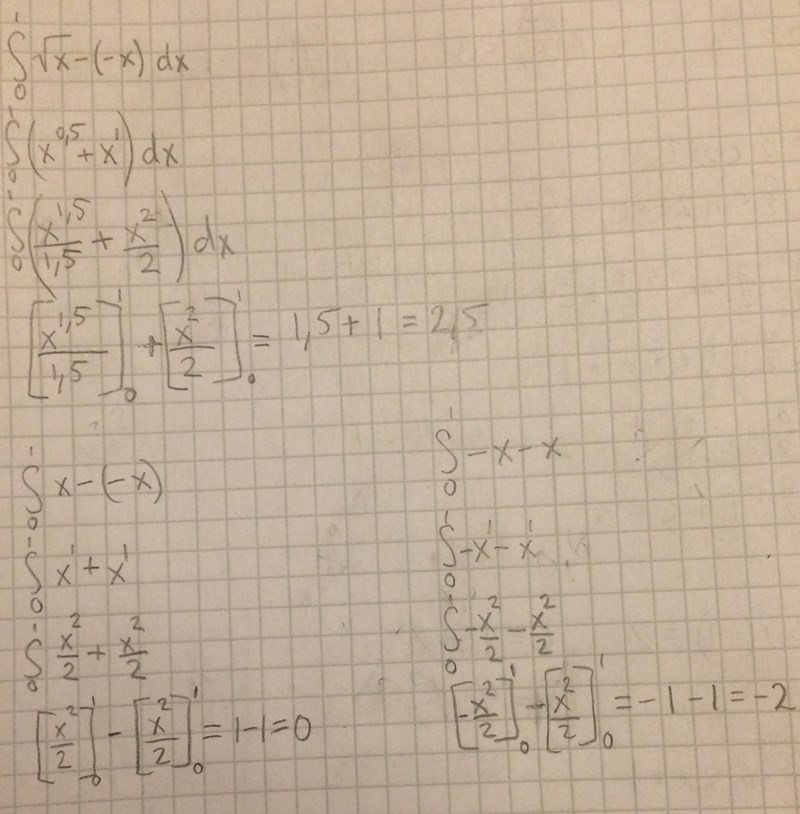 ∫₀¹ √x - (-x) dx
∫₀¹ (x^0,5 + x^1) dx
∫₀¹ (x^1,5/1,5 + x^2/2) dx
[x^1,5/1,5]₀¹ + [x^2/2]₀¹ = 1,5 + 1 = 2,5
∫₀¹ x - (-x)
∫₀¹ x^1 + x^1
∫₀¹ x^2/2 + x^2/2
[x^2/2]₀¹ - [x^2/2]₀¹ = 1 - 1 = 0
∫₀¹ -x - x
∫₀¹ -x^1 - x^1
∫₀¹ -x^2/2 - x^2/2
[-x^2/2]₀¹ - [x^2/2]₀¹ = -1 - 1 = -2